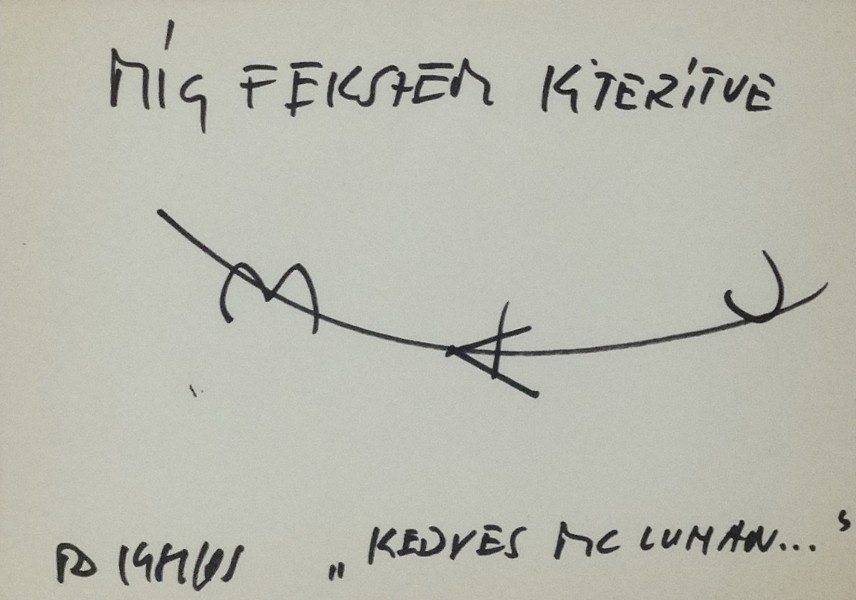 MÍG FEKSTEM KITERÍTVE
M A J
„KEDVES MC LUHAN..."